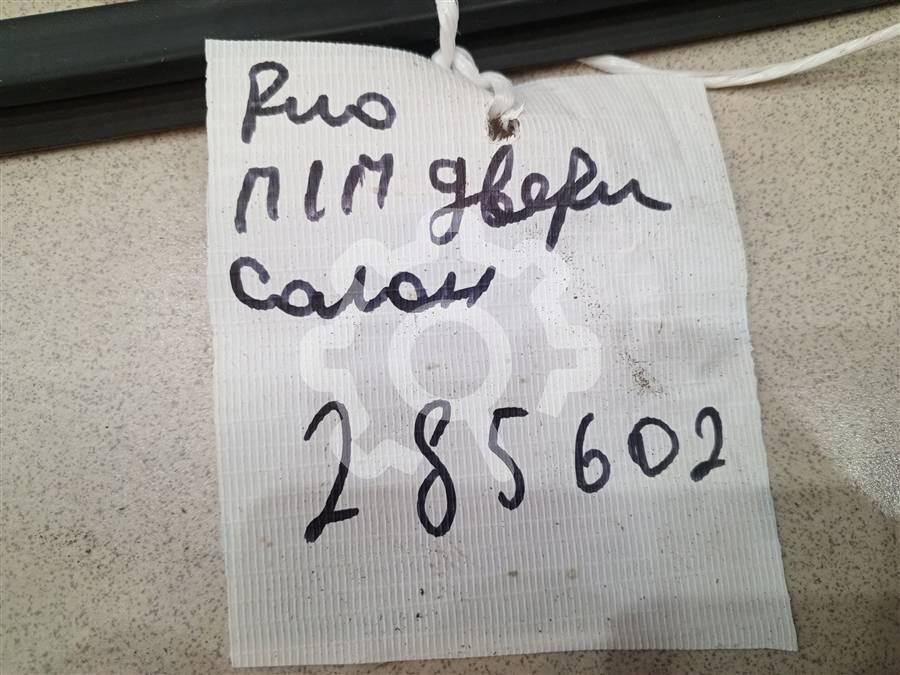 Рио
П/П двери
Салон
285602